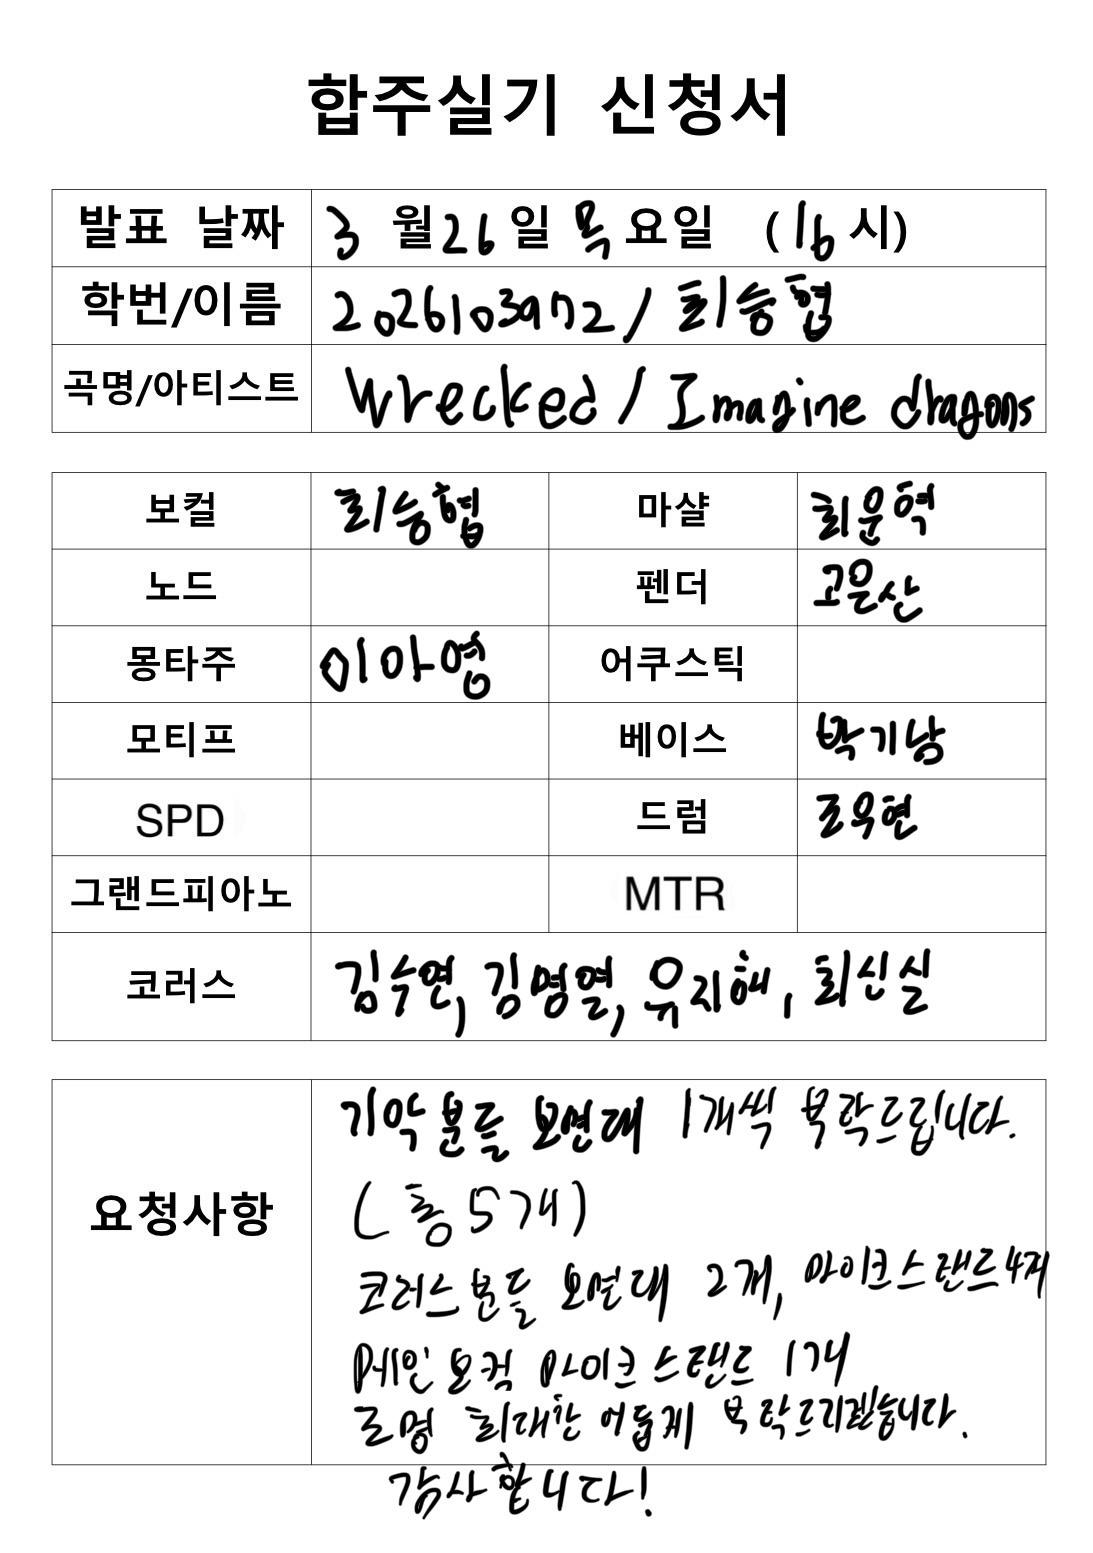 합주실기 신청서
발표 날짜 3 월 26 일 목 요일 (16 시)
학번/이름 2026103972 / 최승협
곡명/아티스트 Wrecked / Imagine dragons
보컬 최승협 마샬 최윤혁
노드 펜더 고은산
몽타주 이아영 어쿠스틱
모티프 베이스 박기남
SPD 드럼 조우현
그랜드피아노 MTR
코러스 김수연, 김명열, 유지해, 최신실
요청사항
기악분들 보면대 1개씩 부탁드립니다.
(총 5개)
코러스분들 보면대 2개, 마이크스탠드 4개
메인보컬 마이크 스탠드 1개
조명 최대한 어둡게 부탁드리겠습니다.
감사합니다!